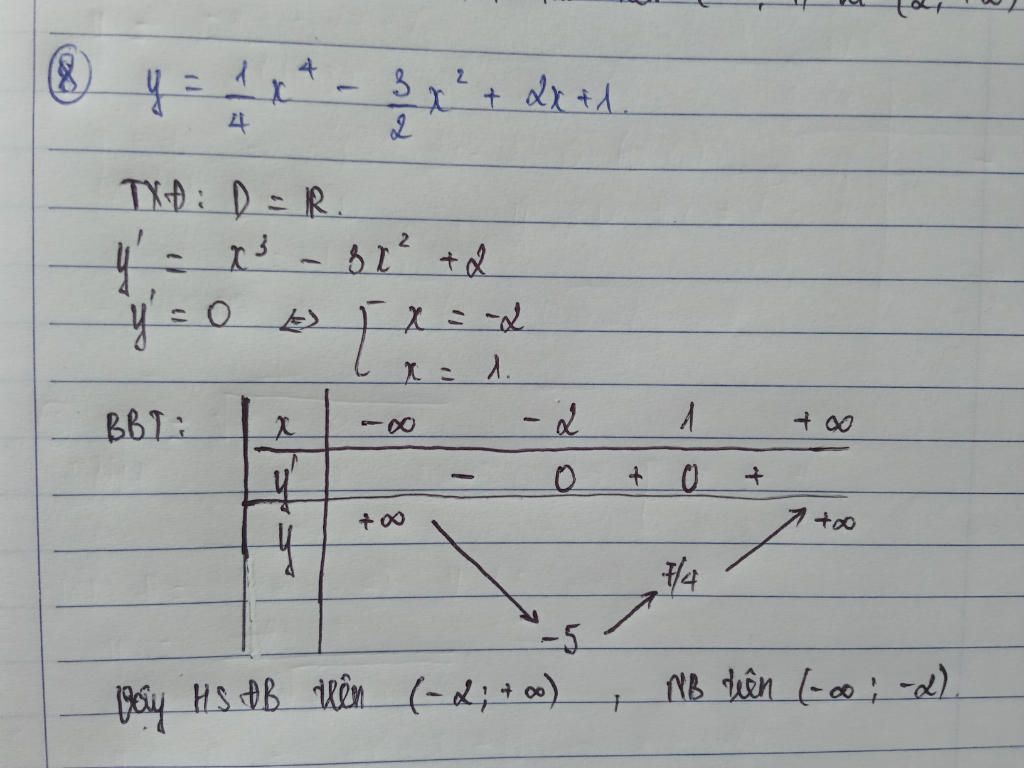 (2; +∞)
⑧ y = 1/4 x⁴ - 3/2 x² + 2x + 1.
TXĐ: D = ℝ.
y' = x³ - 3x² + 2
y' = 0 ⇔ [ x = -2
x = 1.
BBT: x -∞ -2 1 +∞
y' - 0 + 0 +
y +∞ +∞
7/4
-5
Vậy HS ĐB trên (-2; +∞), NB trên (-∞; -2).